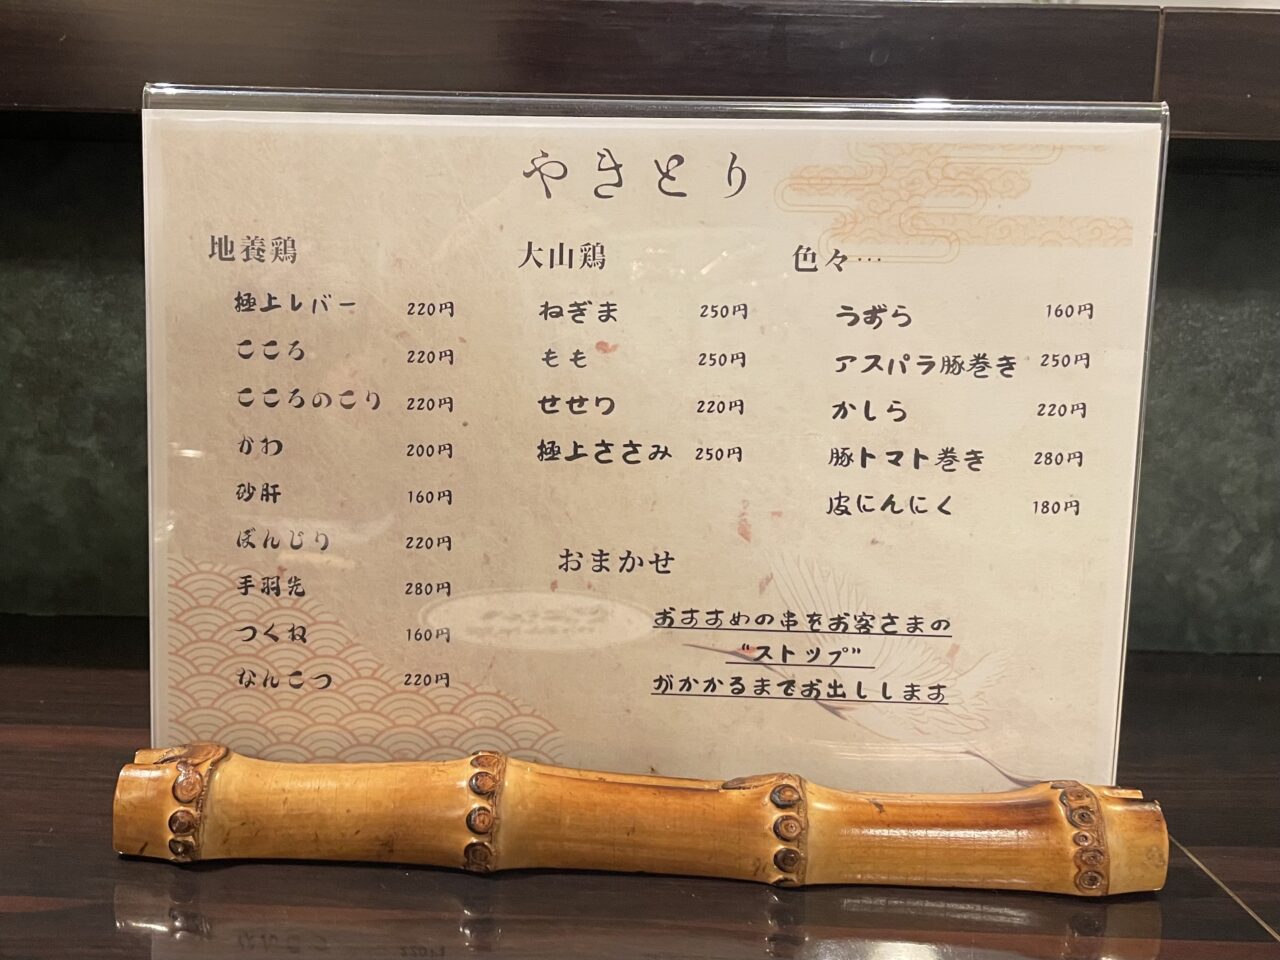 やきとり
地養鶏
極上レバー 220円
こころ 220円
こころのこり 220円
かわ 200円
砂肝 160円
ぼんじり 220円
手羽先 280円
つくね 160円
なんこつ 220円
大山鶏
ねぎま 250円
もも 250円
せせり 220円
極上ささみ 250円
色々…
うずら 160円
アスパラ豚巻き 250円
かしら 220円
豚トマト巻き 280円
皮にんにく 180円
おまかせ
おすすめの串をお客さまの
“ストップ”
がかかるまでお出しします